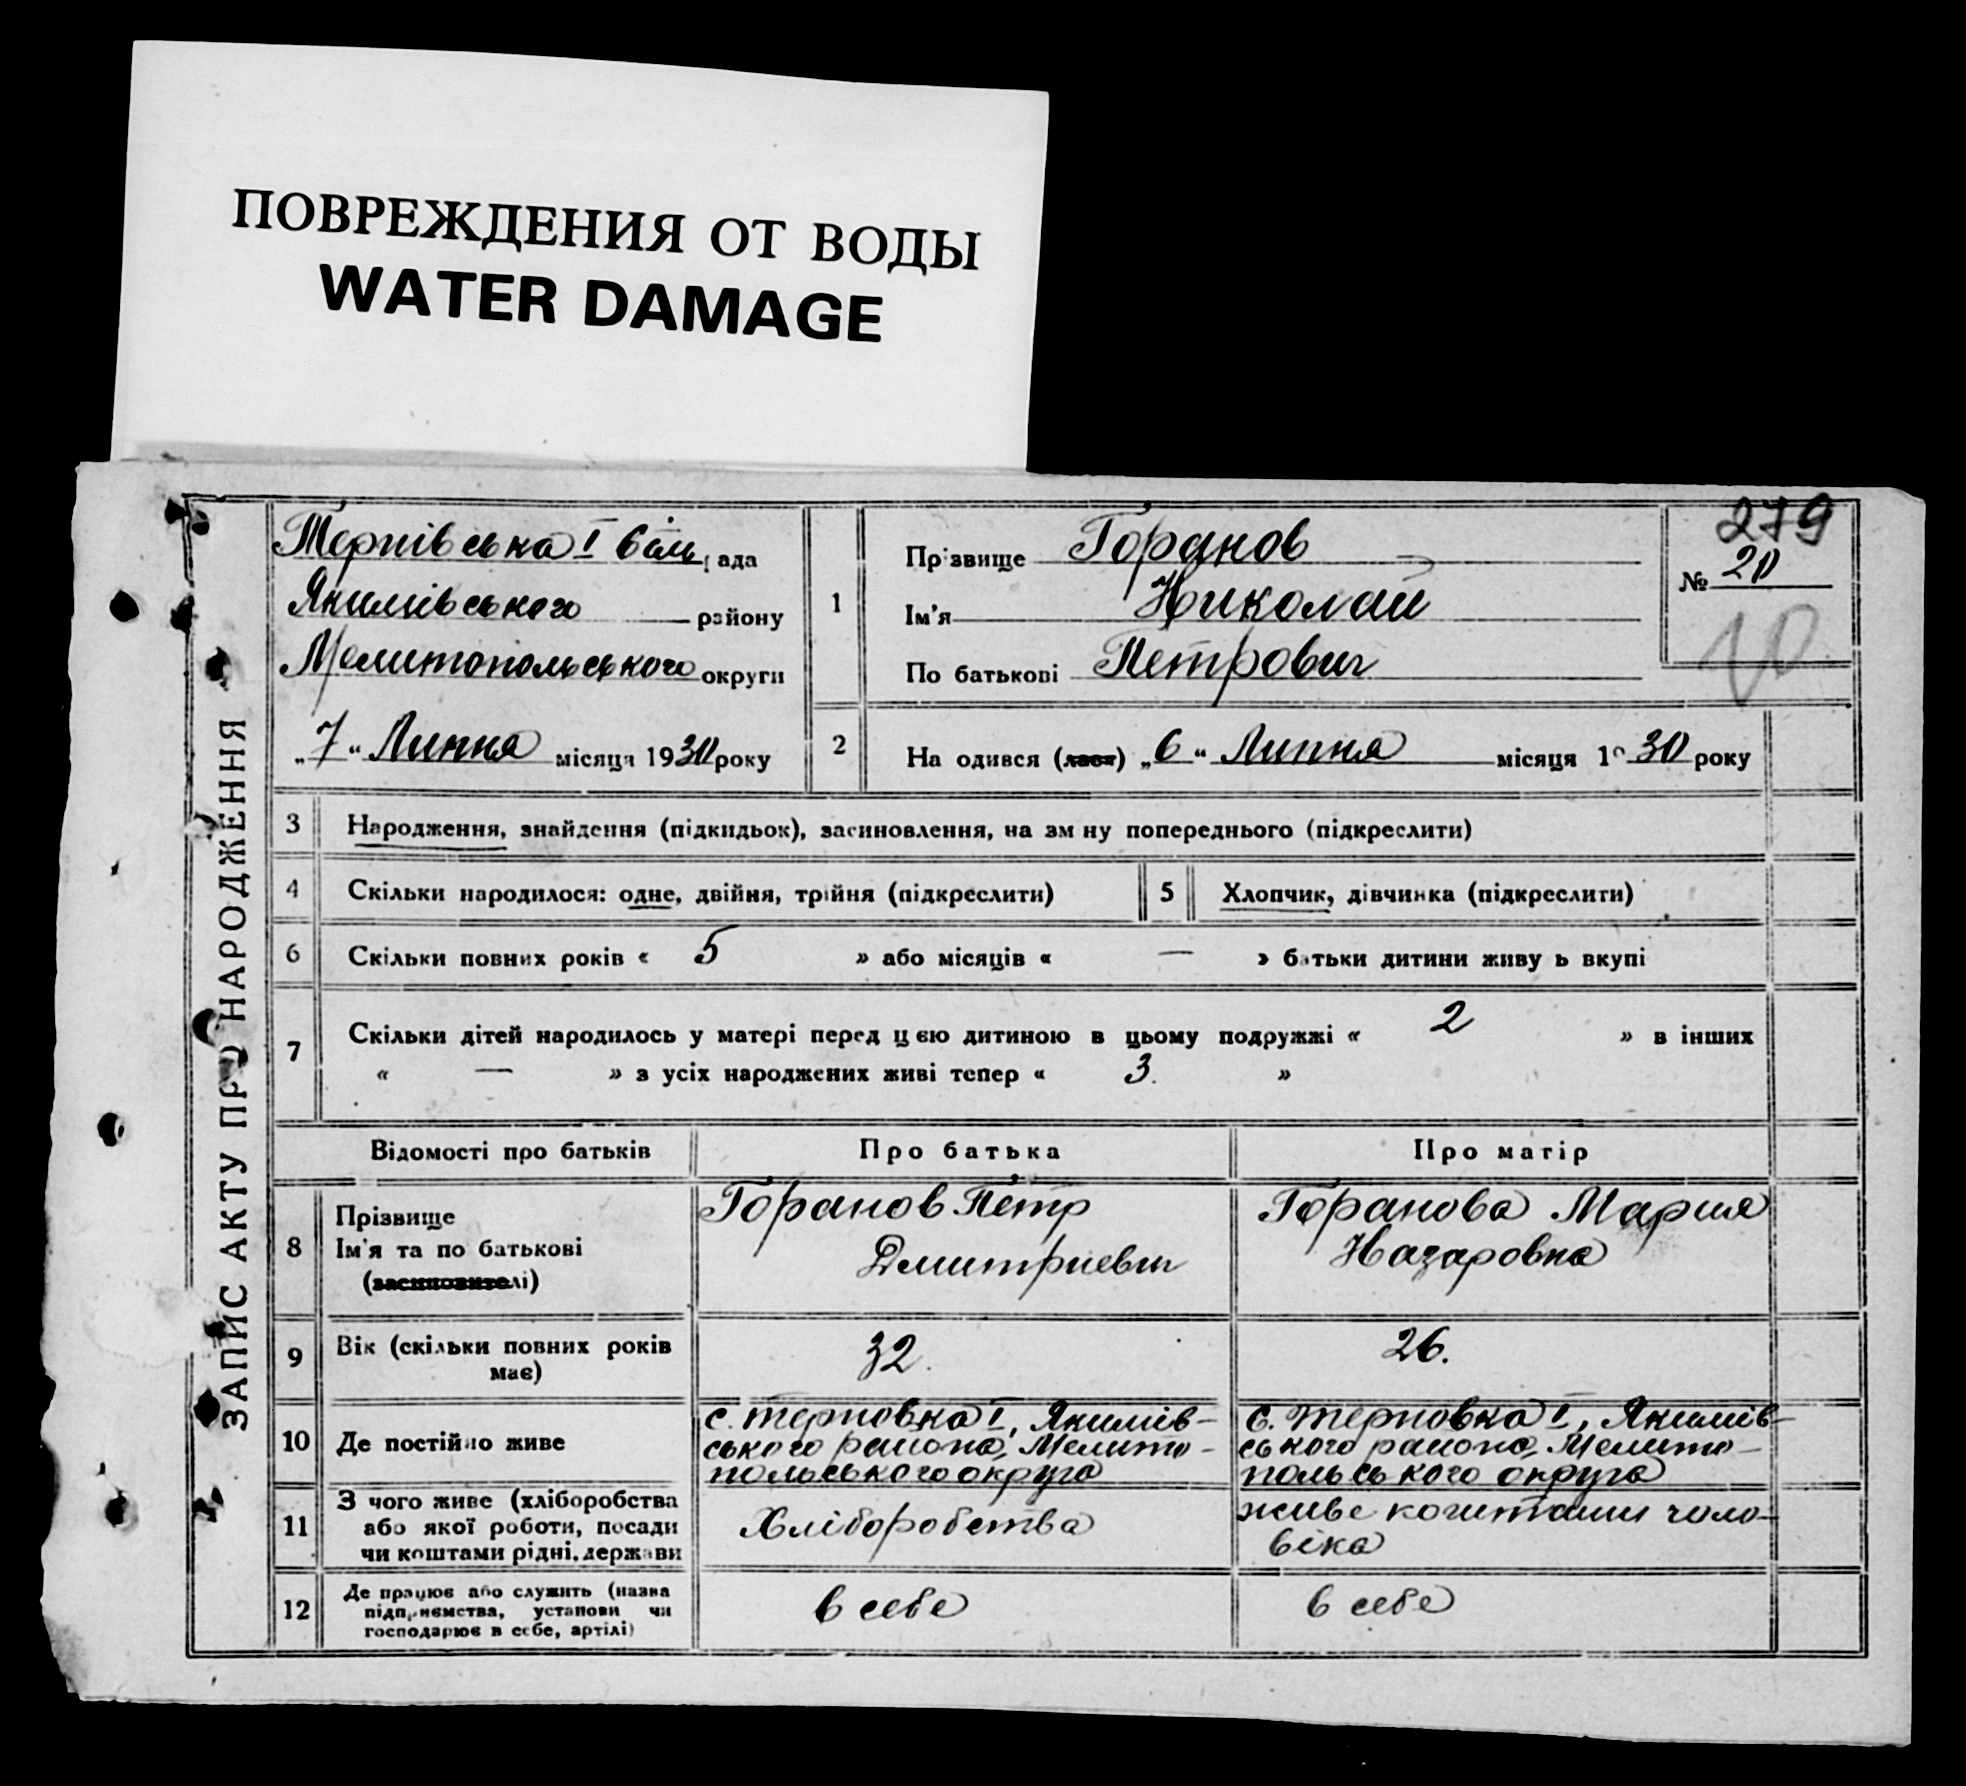 ПОВРЕЖДЕНИЯ ОТ ВОДЫ
WATER DAMAGE
ЗАПИС АКТУ ПРО НАРОДЖЕННЯ
Тернівська I сільрада
Якимівського району
Мелитопольського округи
„7“ Липня місяця 1930 року
279
№ 20
10
1
Прізвище Горанов
Ім'я Николай
По батькові Петрович
2 На одився (лася) „6“ Липня місяця 19 30 року
3 Народження, знайдення (підкидьок), засиновлення, на зм ну попереднього (підкреслити)
4 Скільки народилося: одне, двійня, трійня (підкреслити) 5 Хлопчик, дівчинка (підкреслити)
6 Скільки повних років « 5 » або місяців « — » батьки дитини живу ь вкупі
7 Скільки дітей народилось у матері перед цією дитиною в цьому подружжі « 2 » в інших
« — » з усіх народжених живі тепер « 3. »
Відомості про батьків Про батька Про матір
8 Прізвище Ім'я та по батькові (засиновителі)
Горанов Петр
Дмитриевич
Горанова Мария
Назаровна
9 Вік (скільки повних років має) 32. 26.
10 Де постійно живе
с. Терновка I, Якимів-
ського района, Мелито-
польського округа
с. Терновка I, Якимів-
ського района, Мелито-
польського округа
11 З чого живе (хліборобства
або якої роботи, посади
чи коштами рідні, держави
Хліборобства
живе коштами чоло-
віка
12 Де працює або служить (назва
підприємства, установи чи
господарює в себе, артілі)
в себе
в себе